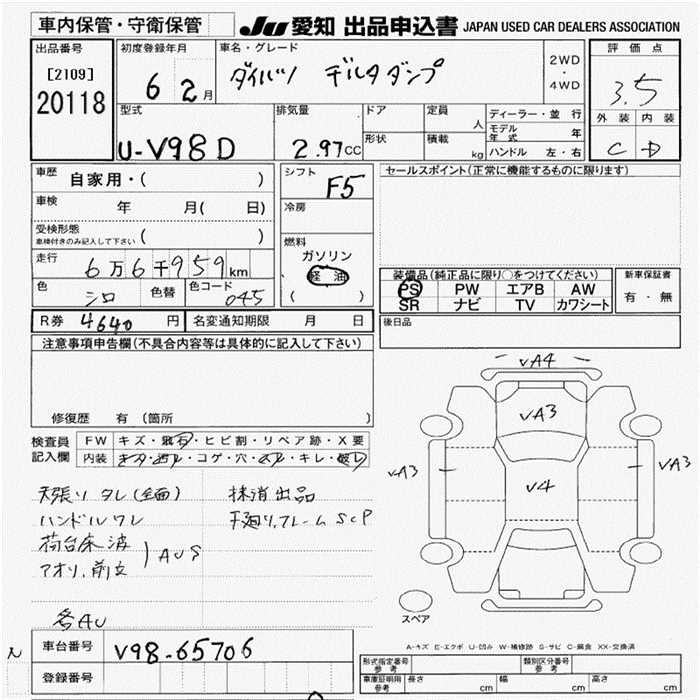 車内保管・守衛保管
JU 愛知 出品申込書 JAPAN USED CAR DEALERS ASSOCIATION
出品番号
[2109]
20118
初度登録年月
6 2月
車名・グレード
ダイハツ デルタダンプ
2WD
・
4WD
評価点
3.5
外装 内装
C D
型式
U-V98D
排気量
2.97CC
ドア
形状
定員
人
積載
kg
ディーラー・並行
モデル年式 年
ハンドル 左・右
車歴
自家用・( )
車検
年 月( 日)
受検形態
車検付きのみ記入して下さい ( )
走行
6万6千959km
色
シロ
色替
色コード
045
シフト
F5
冷房
燃料
ガソリン
軽油
( )
セールスポイント(正常に機能するものに限ります)
装備品(純正品に限り○をつけてください)
PS PW エアB AW
SR ナビ TV カワシート
新車保証書
有・無
R券 4640円
名変通知期限 月 日
後日品
注意事項申告欄(不具合内容等は具体的に記入して下さい)
修復歴 有 (箇所 )
検査員
記入欄
FW キズ・飛石・ヒビ割・リペア跡・X要
内装 キズ・汚レ・コゲ・穴・スレ・キレ・破レ
天張りタレ(全面)
ハンドルワレ
荷台床波
アオリ、前立
AUS
各AU
抹消出品
下廻り、フレームSCP
vA4
vA3
vA3
v4
vA3
スペア
N
車台番号
V98-65706
登録番号
A-キズ E-エクボ U-凹み W-補修跡 S-サビ C-腐食 XX-交換済
形式指定番号
参考
類別区分番号
参考
車庫証明用
参考
長さ cm
幅 cm
高さ cm